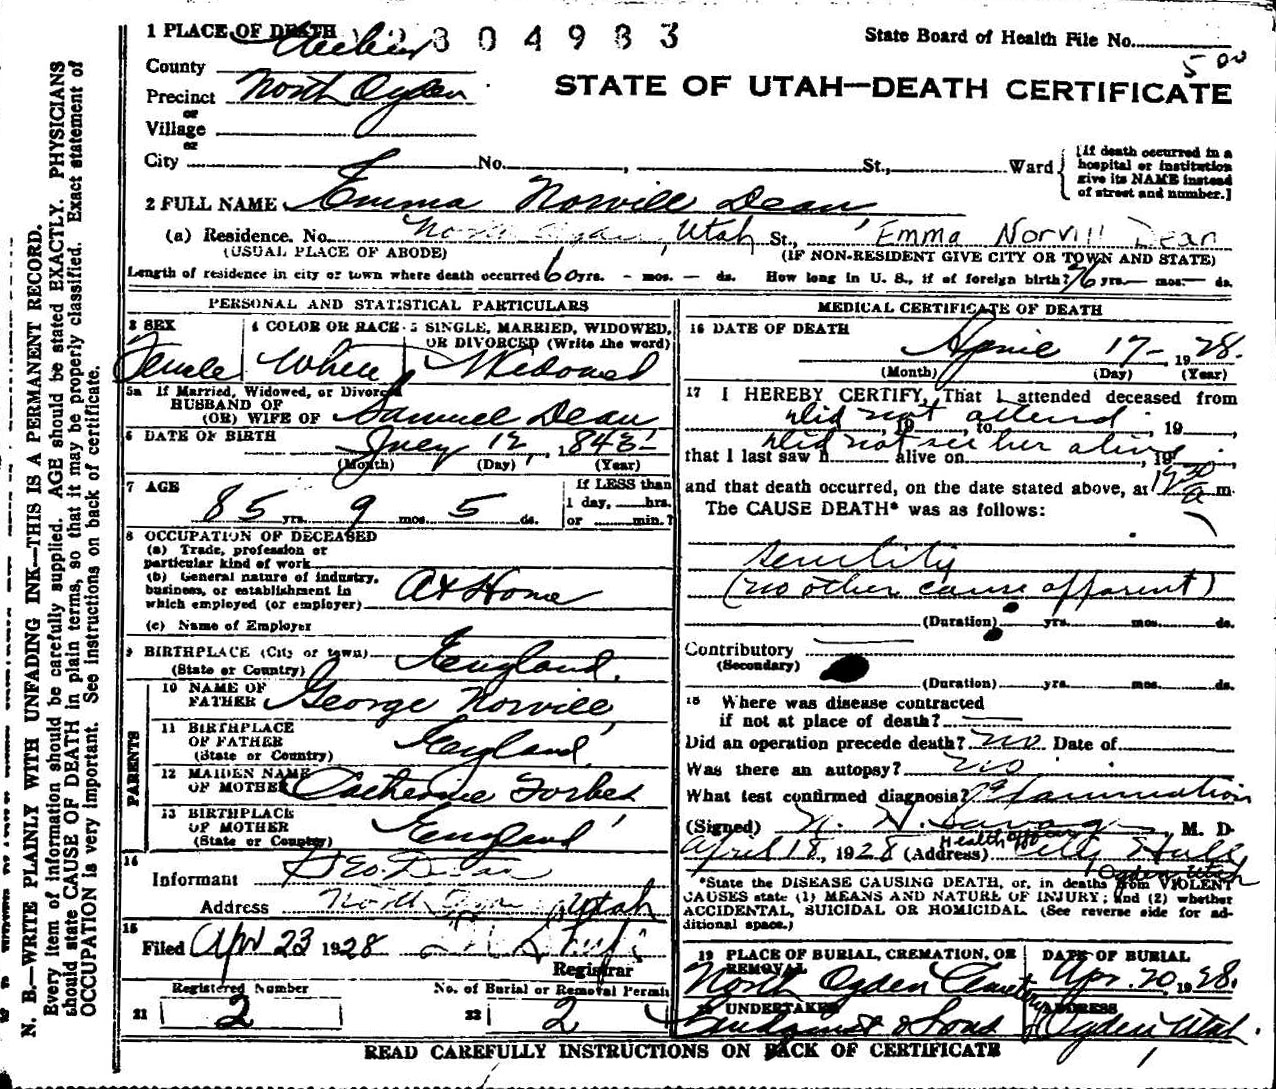 1 PLACE OF DEATH Weber 2804983 State Board of Health File No.
5 00
County
Precinct North Ogden
or
Village
or
STATE OF UTAH—DEATH CERTIFICATE
City No. St., Ward
[If death occurred in a
hospital or institution
give its NAME instead
of street and number.]
2 FULL NAME Emma Norvill Dean
(a) Residence. No. North Ogden, Utah St., Emma Norvill Dean
(USUAL PLACE OF ABODE) (IF NON-RESIDENT GIVE CITY OR TOWN AND STATE)
Length of residence in city or town where death occurred 60 yrs. - mos. - ds. How long in U. S., if of foreign birth? 76 yrs. — mos. — ds.
PERSONAL AND STATISTICAL PARTICULARS
3 SEX 4 COLOR OR RACE 5 SINGLE, MARRIED, WIDOWED,
OR DIVORCED (Write the word)
Female White Widowed
5a If Married, Widowed, or Divorced
HUSBAND OF
(OR) WIFE OF Samuel Dean
6 DATE OF BIRTH July 12, 1843
(Month) (Day) (Year)
7 AGE If LESS than
1 day, hrs.
85 yrs. 9 mos. 5 ds. or min.?
8 OCCUPATION OF DECEASED
(a) Trade, profession or
particular kind of work
(b) General nature of industry,
business, or establishment in
which employed (or employer) At Home
(c) Name of Employer
9 BIRTHPLACE (City or town) England.
(State or Country)
PARENTS
10 NAME OF
FATHER George Norvill
11 BIRTHPLACE
OF FATHER England
(State or Country)
12 MAIDEN NAME
OF MOTHER Catherine Forbes
13 BIRTHPLACE
OF MOTHER England
(State or Country)
14
Informant Geo Dean
Address North Ogden Utah
15
Filed Apr 23 1928
Registrar
Registered Number No. of Burial or Removal Permit
21 2 22 2
MEDICAL CERTIFICATE OF DEATH
16 DATE OF DEATH
April 17- 1928.
(Month) (Day) (Year)
17 I HEREBY CERTIFY, That I attended deceased from
did not attend
, 19 , to , 19 ,
did not see her alive
that I last saw h alive on , 19 ,
and that death occurred, on the date stated above, at a m.
The CAUSE DEATH* was as follows:
Senility
(no other cause apparent)
(Duration) yrs. mos. ds.
Contributory
(Secondary)
(Duration) yrs. mos. ds.
18 Where was disease contracted
if not at place of death?
Did an operation precede death? no Date of
Was there an autopsy? no
What test confirmed diagnosis? Examination
(Signed) , M. D.
April 18, 1928 (Address) Health officer City Hall
Ogden Utah
*State the DISEASE CAUSING DEATH, or, in deaths from VIOLENT
CAUSES state (1) MEANS AND NATURE OF INJURY; and (2) whether
ACCIDENTAL, SUICIDAL OR HOMICIDAL. (See reverse side for ad-
ditional space.)
19 PLACE OF BURIAL, CREMATION, OR
REMOVAL
North Ogden Cemetery
DATE OF BURIAL
Apr. 20, 1928.
20 UNDERTAKER
Lindquist & Sons
ADDRESS
Ogden Utah.
READ CAREFULLY INSTRUCTIONS ON BACK OF CERTIFICATE
N. B.—WRITE PLAINLY WITH UNFADING INK—THIS IS A PERMANENT RECORD.
Every item of information should be carefully supplied. AGE should be stated EXACTLY. PHYSICIANS
should state CAUSE OF DEATH in plain terms, so that it may be properly classified. Exact statement of
OCCUPATION is very important. See instructions on back of certificate.